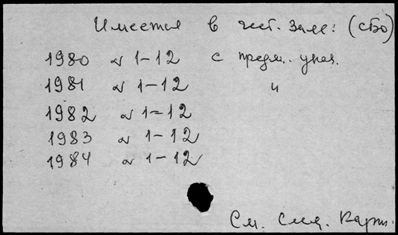 Имеется в чит. зале: (СБО)
1980 № 1-12 с предм. указ.
1981 № 1-12 "
1982 № 1-12
1983 № 1-12
1984 № 1-12
См. след. карт.